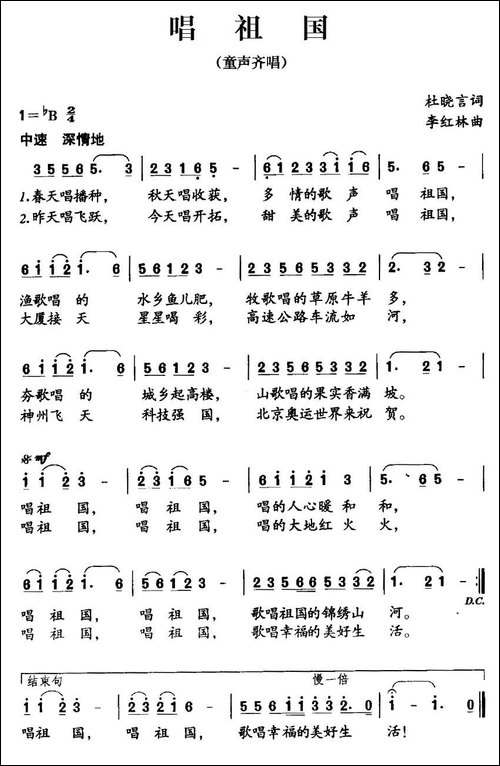 唱祖国
（童声齐唱）
1=♭B 2/4
杜晓言词
中速 深情地
李红林曲
3 5 5 6 5. 3 | 2 3 1 6 5 - | 6 1 2 3 3 1 1 6 | 5. 6 5 - |
1.春天唱播种， 秋天唱收获， 多情的歌声唱祖国，
2.昨天唱飞跃， 今天唱开拓， 甜美的歌声唱祖国，
6 1 1 2 1. 6 | 5 6 1 2 3 - | 2 3 5 6 5 3 3 2 | 2. 3 2 - |
渔歌唱的 水乡鱼儿肥， 牧歌唱的草原牛羊多，
大厦接天 星星喝彩， 高速公路车流如河，
6 1 1 2 1. 6 | 5 6 1 2 3 - | 2 3 5 6 5 3 3 2 | 1. 2 1 - |
夯歌唱的 城乡起高楼， 山歌唱的果实香满坡。
神州飞天 科技强国， 北京奥运世界来祝贺。
mf
1 1 2 3 - | 2 3 1 6 5 - | 6 1 1 2 1 3 | 5. 6 5 - |
唱祖国， 唱祖国， 唱的人心暖和和，
唱祖国， 唱祖国， 唱的大地红火火，
6 1 1 2 1. 6 | 5 1 2 2 3 - | 2 3 5 6 5 5 3 2 | 1. 2 1 - :||
唱祖国， 唱祖国， 歌唱祖国的锦绣山河。
D.C.
唱祖国， 唱祖国， 歌唱幸福的美好生活。
结束句 慢一倍
1 1 2 3 - | 2 3 2 1 6 - | 5 5 6 1 1 3 3 2. 0 | 1 - | 1. 0 ||
唱祖国， 唱祖国， 歌唱幸福的美好生活！